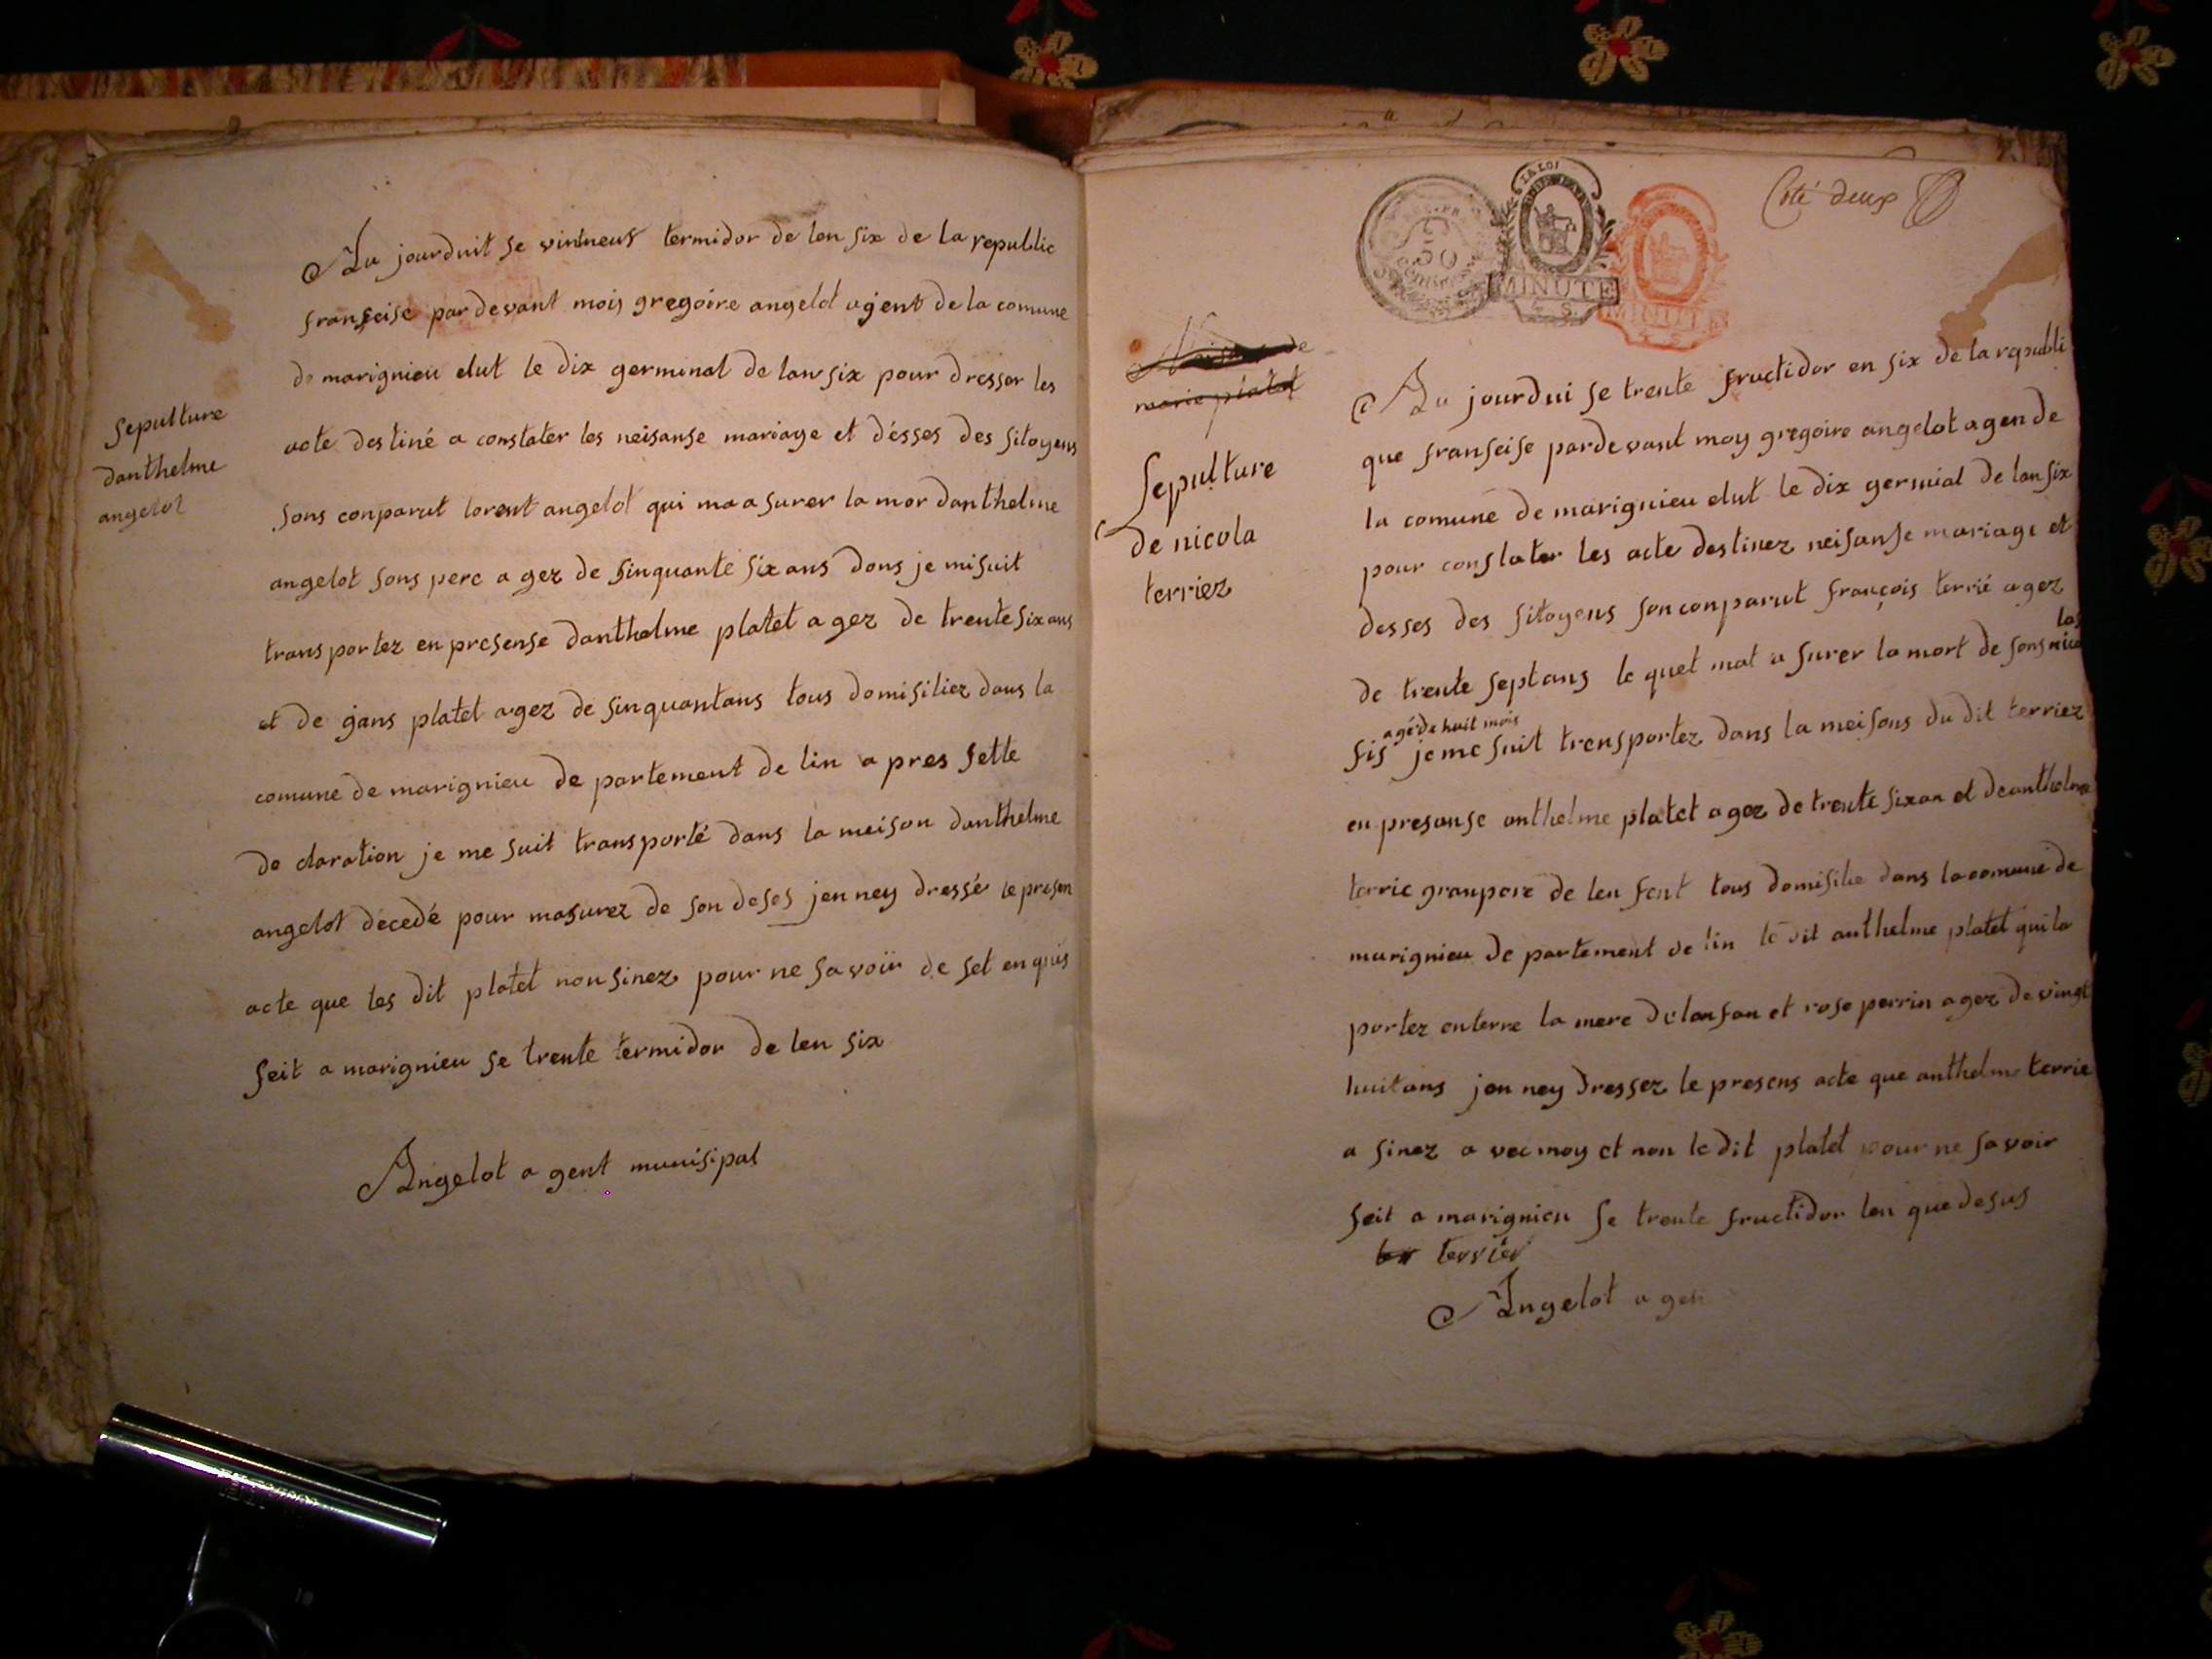 Sepulture
danthelme
angelot
Au jourduit se vintneuf termidor de len six de la republic
franseise par devant mois gregoire angelot agent de la comune
de marignieu elut le dix germinal de lan six pour dresser les
acte destiné a constater les neisanse mariage et désses des sitoyens
sons conparut lorent angelot qui ma asurer la mor danthelme
angelot sons pere agez de sinquante six ans dons je misuit
transportez en presense danthelme platet agez de trente six ans
et de gans platet agez de sinquantans tous domisiliez dans la
comune de marignieu de partement de lin apres sette
de claration je me suit transporté dans la meison danthelme
angelot décedé pour masurez de son deses jen ney dressé le presen
acte que les dit platet non sinez pour ne savoir de set enquis
feit a marignieu se trente termidor de len six
Angelot agent munisipal
Coté deux
LA LOI
50
MINUTE
MINUTE
de
marie platet
Sepulture
de nicola
terriez
Au jourdui se trente fructidor en six de la republi
que franseise pardevant moy gregoire angelot agen de
la comune de marignieu elut le dix germial de lan six
pour constater les acte destinez neisanse mariage et
desses des sitoyens son conparut françois terrié agez
de trente septans le quel mat asurer la mort de sons nico
las
agé de huit mois
fis je me suit trensportez dans la meisons du dit terriez
en presanse anthelme platet agez de trente sixan et deanthelme
terrie granpere de len fent tous domisilie dans la comune de
marignieu de partement de lin le dit anthelme platet qui la
portez enterre la mere de lanfan et rose perrin agez de vingt
huitans jen ney dressez le presens acte que anthelme terrie
a sinez avec moy et non le dit platet pour ne savoir
feit a marignieu se trente fructidor len que desus
terrier
Angelot agen